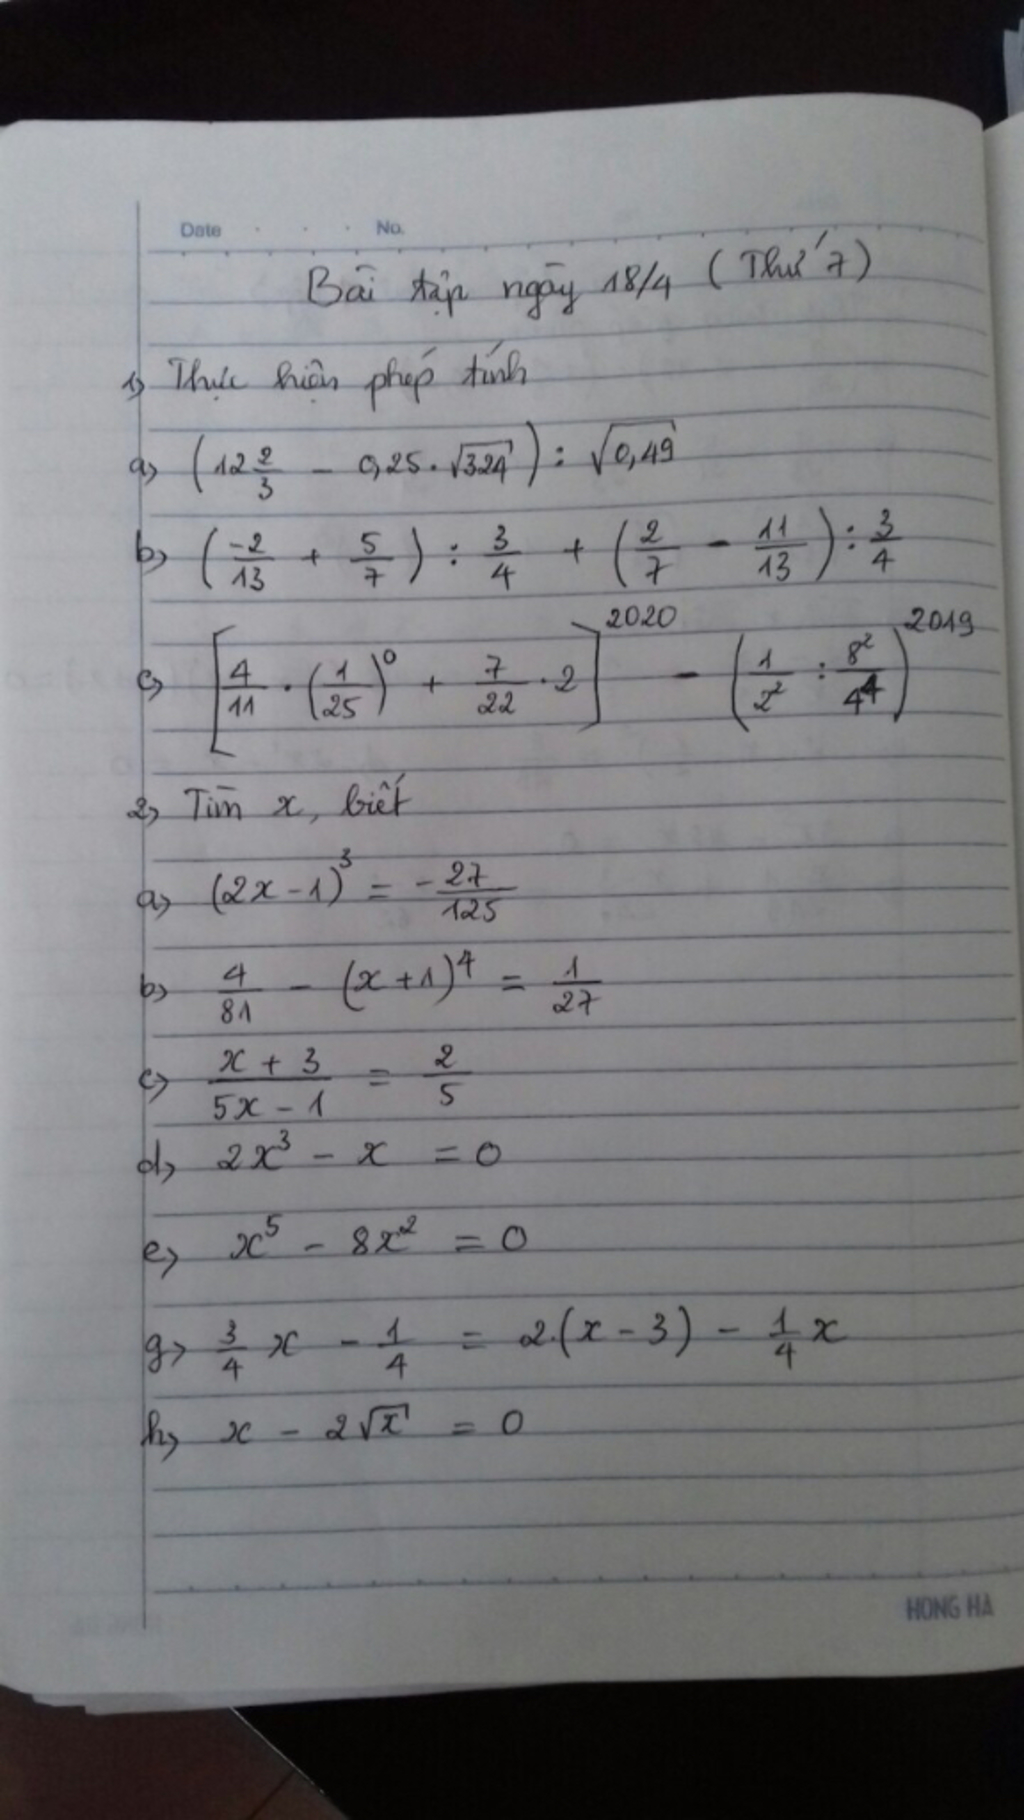 Date No.
Bài tập ngày 18/4 (Thứ 7)
1, Thực hiện phép tính
a, (12 2/3 - 0,25 . √324) : √0,49
b, (-2/13 + 5/7) : 3/4 + (2/7 - 11/13) : 3/4
c, [4/11 . (1/25)^0 + 7/22 . 2]^2020 - (1/2^2 : 8^2/4^4)^2019
2, Tìm x, biết
a, (2x-1)^3 = -27/125
b, 4/81 - (x+1)^4 = 1/27
c, (x + 3)/(5x - 1) = 2/5
d, 2x^3 - x = 0
e, x^5 - 8x^2 = 0
g, 3/4 x - 1/4 = 2.(x - 3) - 1/4 x
h, x - 2√x = 0
HONG HA